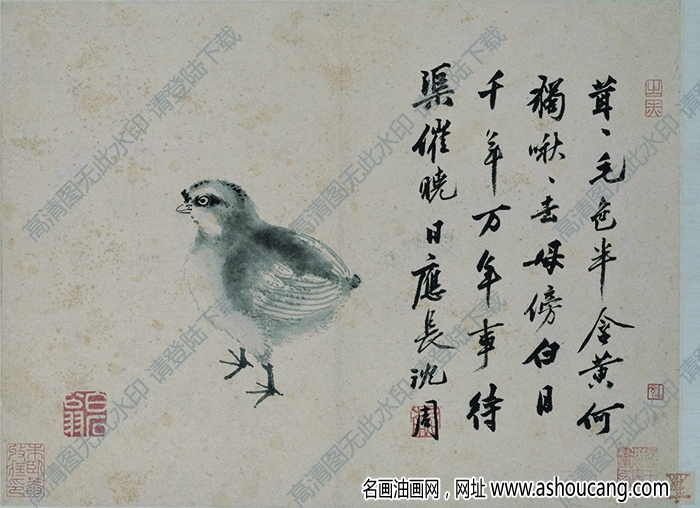 茸、毛色半含黄何
獨啾、去母傍白日
千年万年事待
渠催曉日應長沈周
白石翁
高清图无此水印 请登陆下载
高清图无此水印 请登陆下载
高清图无此水印 请登陆下载
高清图无此水印 请登陆下载
名画油画网，网址 www.ashoucang.com